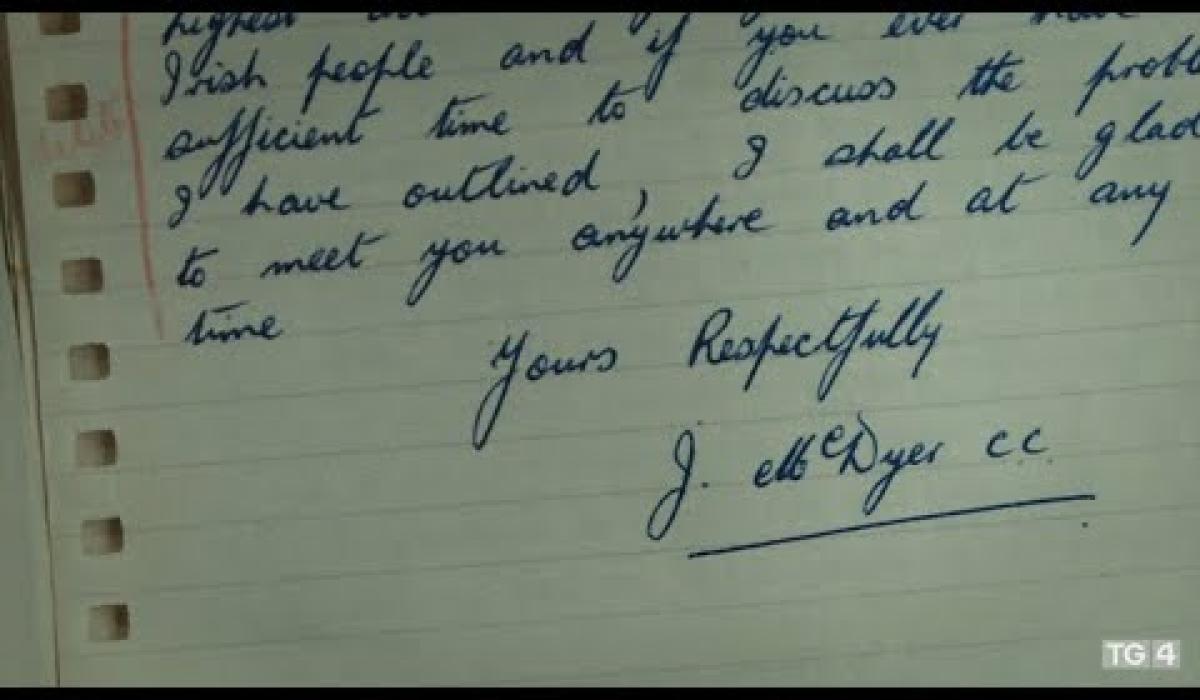 highest
Irish people and if you ever have
sufficient time to discuss the probl
I have outlined, I shall be glad
to meet you anywhere and at any
time
Yours Respectfully
J. McDyer CC
TG4